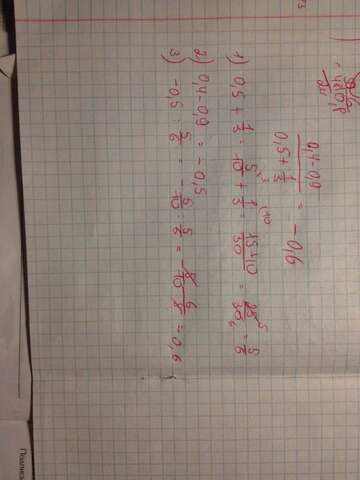 (0,4-0,9)/(0,5+1/3) = -0,6
1) 0,5 + 1/3 = 5/10 + 1/3 = 15+10/30 = 25/30 = 5/6
2) 0,4-0,9 = -0,5
3) -0,5 : 5/6 = -5/10 : 5/6 = -5/10 6/5 = 0,6
Подпись